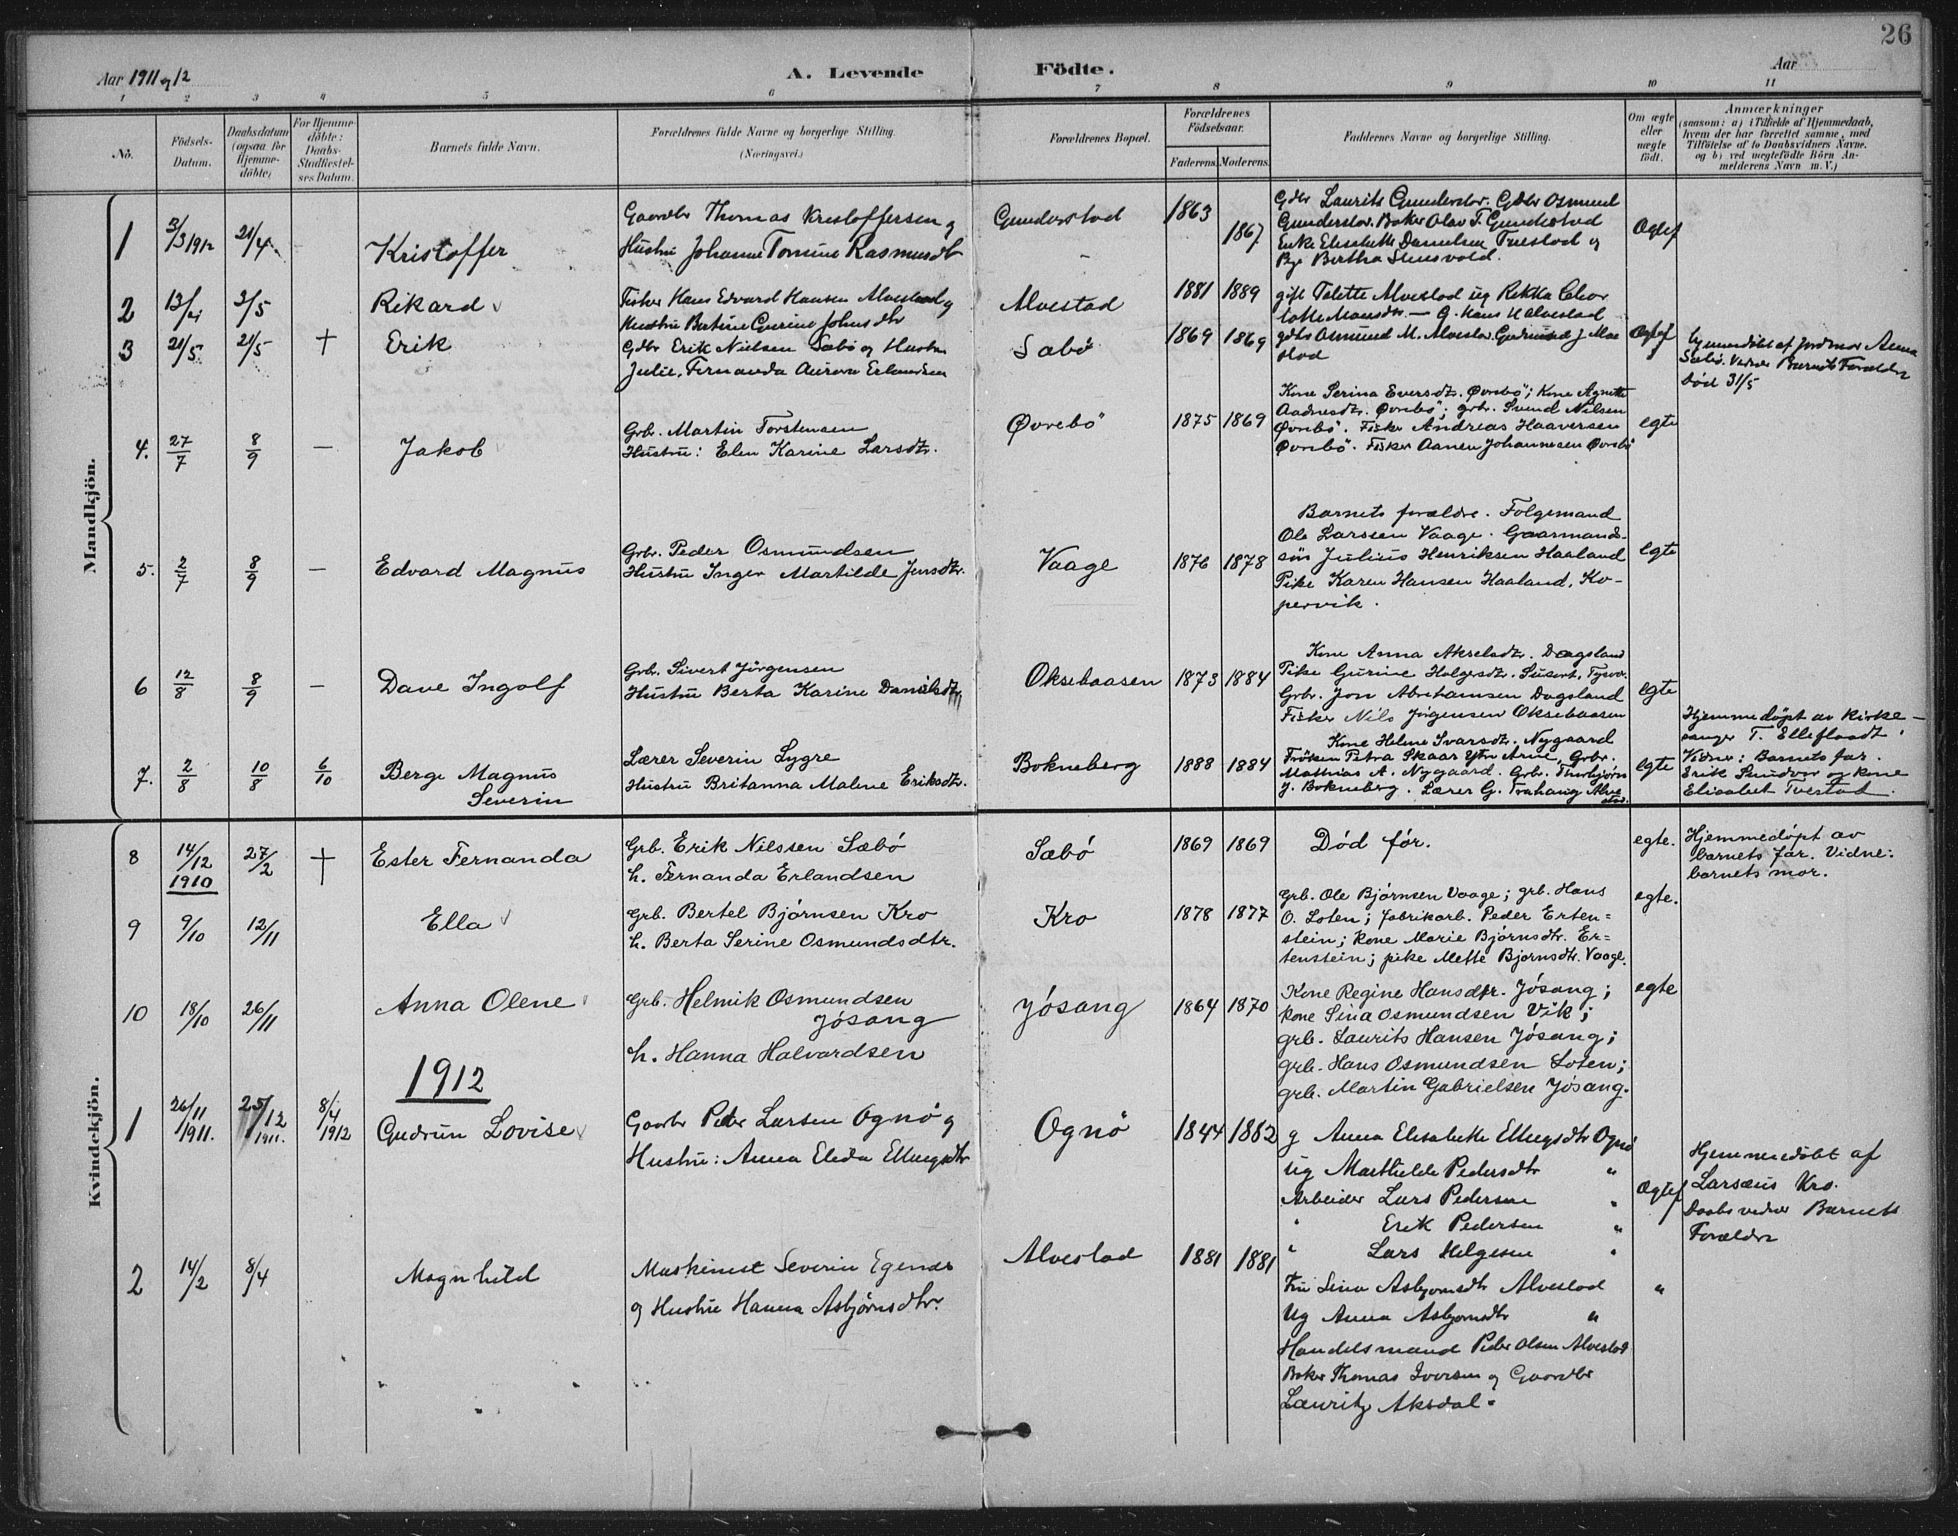 26
Aar 1911 og 12
A. Levende Födte.
Aar
1 2 3 4 5 6 7 8 9 10 11
No.
Födsels-Datum.
Daabsdatum (ogsaa for Hjemme-döbte)
For Hjemme-döbte: Daabs-Stadfæstel-ses Datum.
Barnets fulde Navn.
Forældrenes fulde Navne og borgerlige Stilling.
(Næringsvei.)
Forældrenes Bopæl.
Forældrenes Födselsaar.
Faderens. Moderens.
Faddernes Navne og borgerlige Stilling.
Om ægte eller uægte födt.
Anmærkninger
(saasom: a) i Tilfælde af Hjemmedaab,
hvem der har forrettet samme, med
Tilföielse af to Daabsvidners Navne.
og b) ved uægtefödte Börn An-
melderens Navn m. V.)
Mandkjön.
1 3/3 1912 21/4 Kristoffer
Gaardbr Thomas Kristoffersen og
Hustru Johanne Tomine Rasmusdt
Gunderstad 1863 1867
Gdbr Laurits Gunderstav. Gdbr Osmund
Gunderstav. Baker Olav T. Gunderstad
Enke Elisabeth Danielsen Tuestad og
Pige Bertha Stensvold.
Ogtef
2 13/ 3/5 Rikard
Fisker Hans Edvard Hansen Alvestad og
Hustru Bertine Gurine Johnsdtr
Alvestad 1881 1889
gift Talette Alvestad ug Rikka Char
lotte Monsdtr — G. Hans H Alvestad
3 21/5 21/5 + Erik
Gdbr Erik Nielsen Sæbö og Hustru
Julie, Fernanda Aurora Erlandsen
Sæbö 1869 1869
gdbr Osmund M. Alvestav Gudmund J Alve
stad
Ogtef
hjemmedöbt af Jordmor Anna
Sæbö. Vidner Barnets Forældre
Död 31/5
4. 27/7 8/9 — Jakob
Grbr. Martin Torstensen
Hustru: Elen Karine Larsdtr.
Øvrebö 1875 1869
Kone Serina Eversdtr. Øvrebö; Kone Agnette
Aadnesdtr. Øvrebö; grbr. Svend Nilsen
Øvrebö. Fisker Andreas Haaversen
Øvrebö. Fisker Aanen Johannesen Øvrebö
egte
5. 2/7 8/9 — Edvard Magnus
Grbr. Peder Osmundsen
Hustru Inger Martilde Jensdtr.
Vaage 1876 1878
Barnets forældre. Folgemand
Ole Larssen Vaage. Gaarmand-
sön Julius Henriksen Haaland
Pike Karen Hansen Haaland, Ko-
pervik.
egte
6 12/8 8/9 — Dave Ingolf
Grbr. Sivert Jörgensen
Hustru Berta Karine Danielsdtr
Oksebaasen 1873 1884
Kone Anna Akselsdtr. Dagsland
Pike Gurine Holgersdtr. Susort, Tysvær.
Grbr. Jon Abrahamsen Dagsland
Fisker Nils Jörgensen Oksebaasen
egte
7. 2/8 10/8 6/10 Berge Magnus
Severin
Lærer Severin Lygre
Hustru Britanna Malene Eriksdtr.
Bokneberg 1888 1884
Kone Helene Ivarsdtr. Nygaard
Fröken Petra Skaar Ytre Arne, Grbr.
Mathias A. Nygaard. Grbr. Thorbjörn
J. Bokneberg. Lærer G. Trahaug Alve
stad.
egte
Hjemmedöpt av Kirke-
sanger T. Elleflaadt.
Vidner: Barnets far.
Erik Sundvor og kone
Elisabet Tvestad.
Kvindekjön.
8 14/12 1910 27/2 + Ester Fernanda
Grb. Erik Nilssen Sæbó
h. Fernanda Erlandsen
Sæbó 1869 1869 Död før. egte.
Hjemmedöpt av
barnets far. Vidne:
barnets mor.
9 9/10 12/11 Ella
Grb. Bertel Bjórnsen Kro
h. Berta Serine Osmundsdtr.
Kro 1878 1877
Grb. Ole Bjórnsen Vaage; grb. Hans
O. Loten; fabrikarb. Peder Erten=
stein; kone Marie Bjórnsdtr. Er=
tenstein; pike Mette Bjórnsdtr. Vaage.
egte.
10 18/10 26/11 Anna Olene
Grb. Helmik Osmundsen
Jósang
h. Hanna Halvardsen
Jósang 1864 1870
Kone Regine Hansdtr. Jósang;
kone Sina Osmundsen Vik;
grb. Laurits Hansen Jósang;
grb. Hans Osmundsen Loten;
grb. Martin Gabrielsen Jósang.
egte
1912
1 26/11 1911. 25/12 1911. 8/4 1912 Gudrun Lovise
Gaardbr Peder Larsen Ognö og
Hustru: Anna Elida Ellingsdtr
Ognö 1844 1882
g Anna Elisabeth Ellingsdtr Ognö
Ug Marthilde Pedersdtr "
Arbeider Lars Pedersen "
" Erik Pedersen "
" Lars Helgesen "
Ogtef
Hjemmedöbt af
Larsæus Kro.
Daabsvidner Barnets
Forældre
2 14/2 8/4 Magnhild
Maskinist Severin Egenes
og Hustru Hanna Asbjörnsdtr.
Alvestad 1881 1881
Fru Sina Asbjornsdtr Alvestad
Ug Anna Asbjornsdtr "
Handelsmand Peder Olsen Alvestad
Baker Thomas Iversen og Gaardbr
Lauritz Aksdal.
"